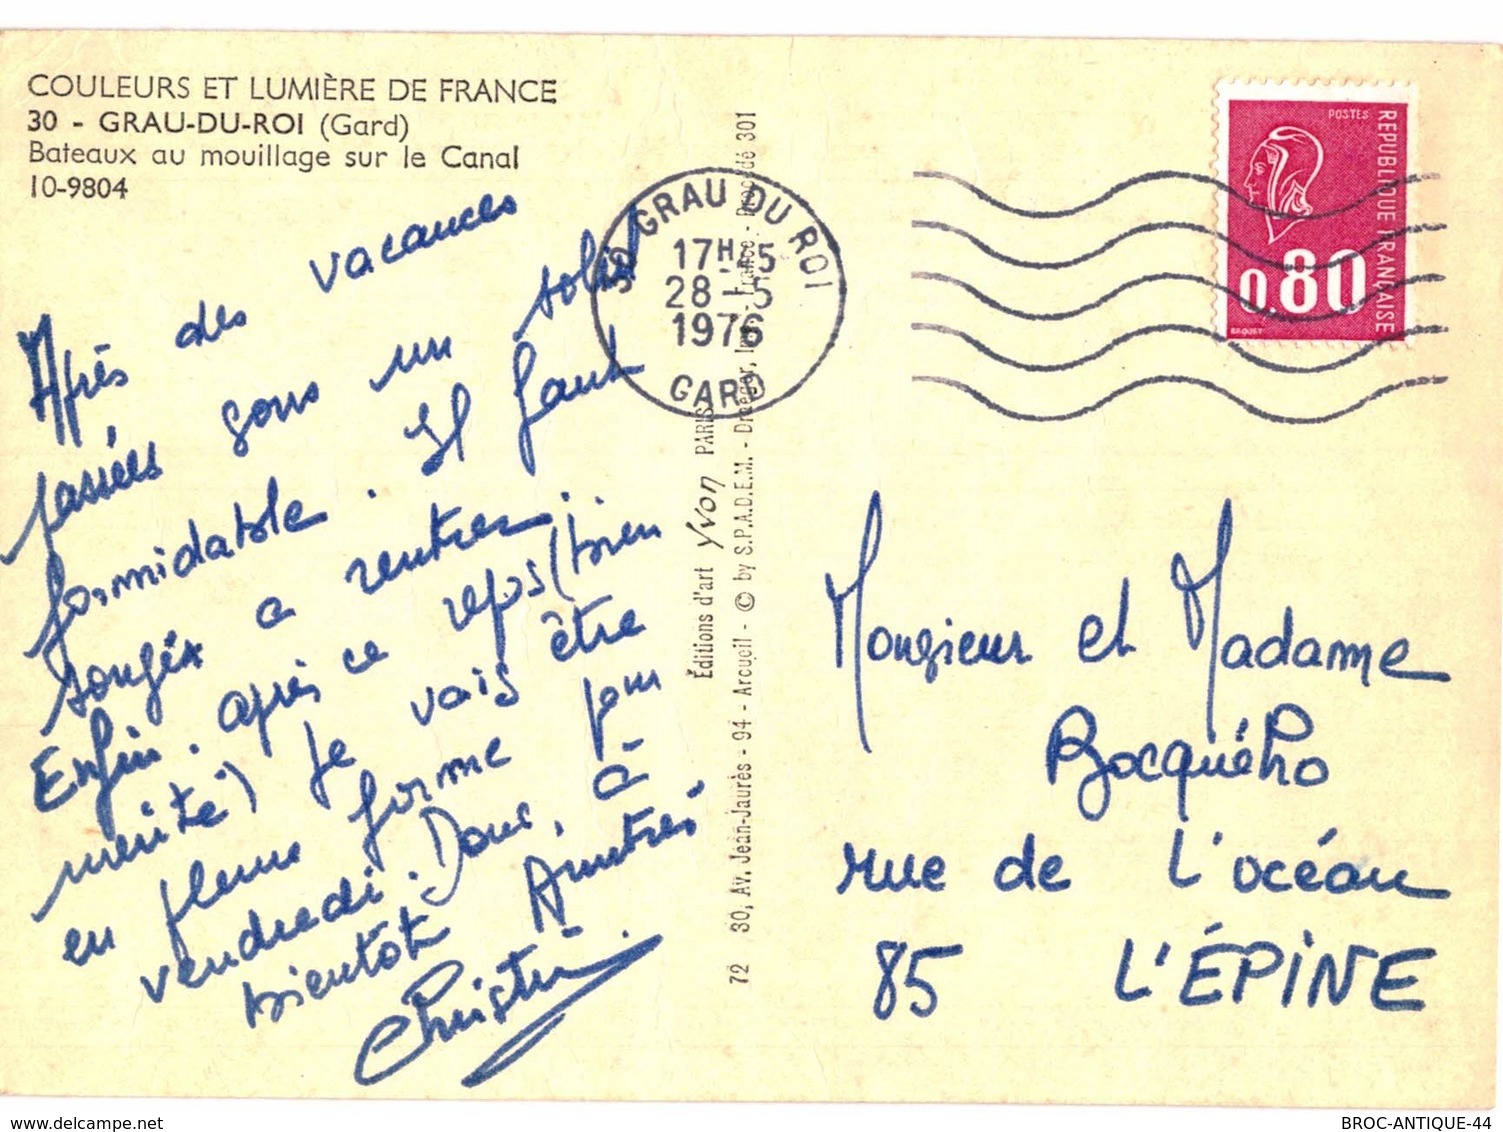 COULEURS ET LUMIÈRE DE FRANCE
30 - GRAU-DU-ROI (Gard)
Bateaux au mouillage sur le Canal
10-9804
Après des vacances
passées sous un soleil
formidable. Il faut
songer a rentrer.
Enfin. après ce repos (bien
mérité) je vais être
en pleine forme pour
vendredi. Donc, à
bientôt Amitiés
Christin
30 GRAU DU ROI
17H45
28-5
1976
GARD
Éditions d'art Yvon PARIS
72 30, Av. Jean-Jaurès - 94 - Arcueil - © by S.P.A.D.E.M. - Draeger, Imp. - France - Procédé 301
POSTES
REPUBLIQUE FRANÇAISE
0,80
BEQUET
Monsieur et Madame
Bocquého
rue de L'océan
85 L'ÉPINE
www.delcampe.net
BROC-ANTIQUE-44